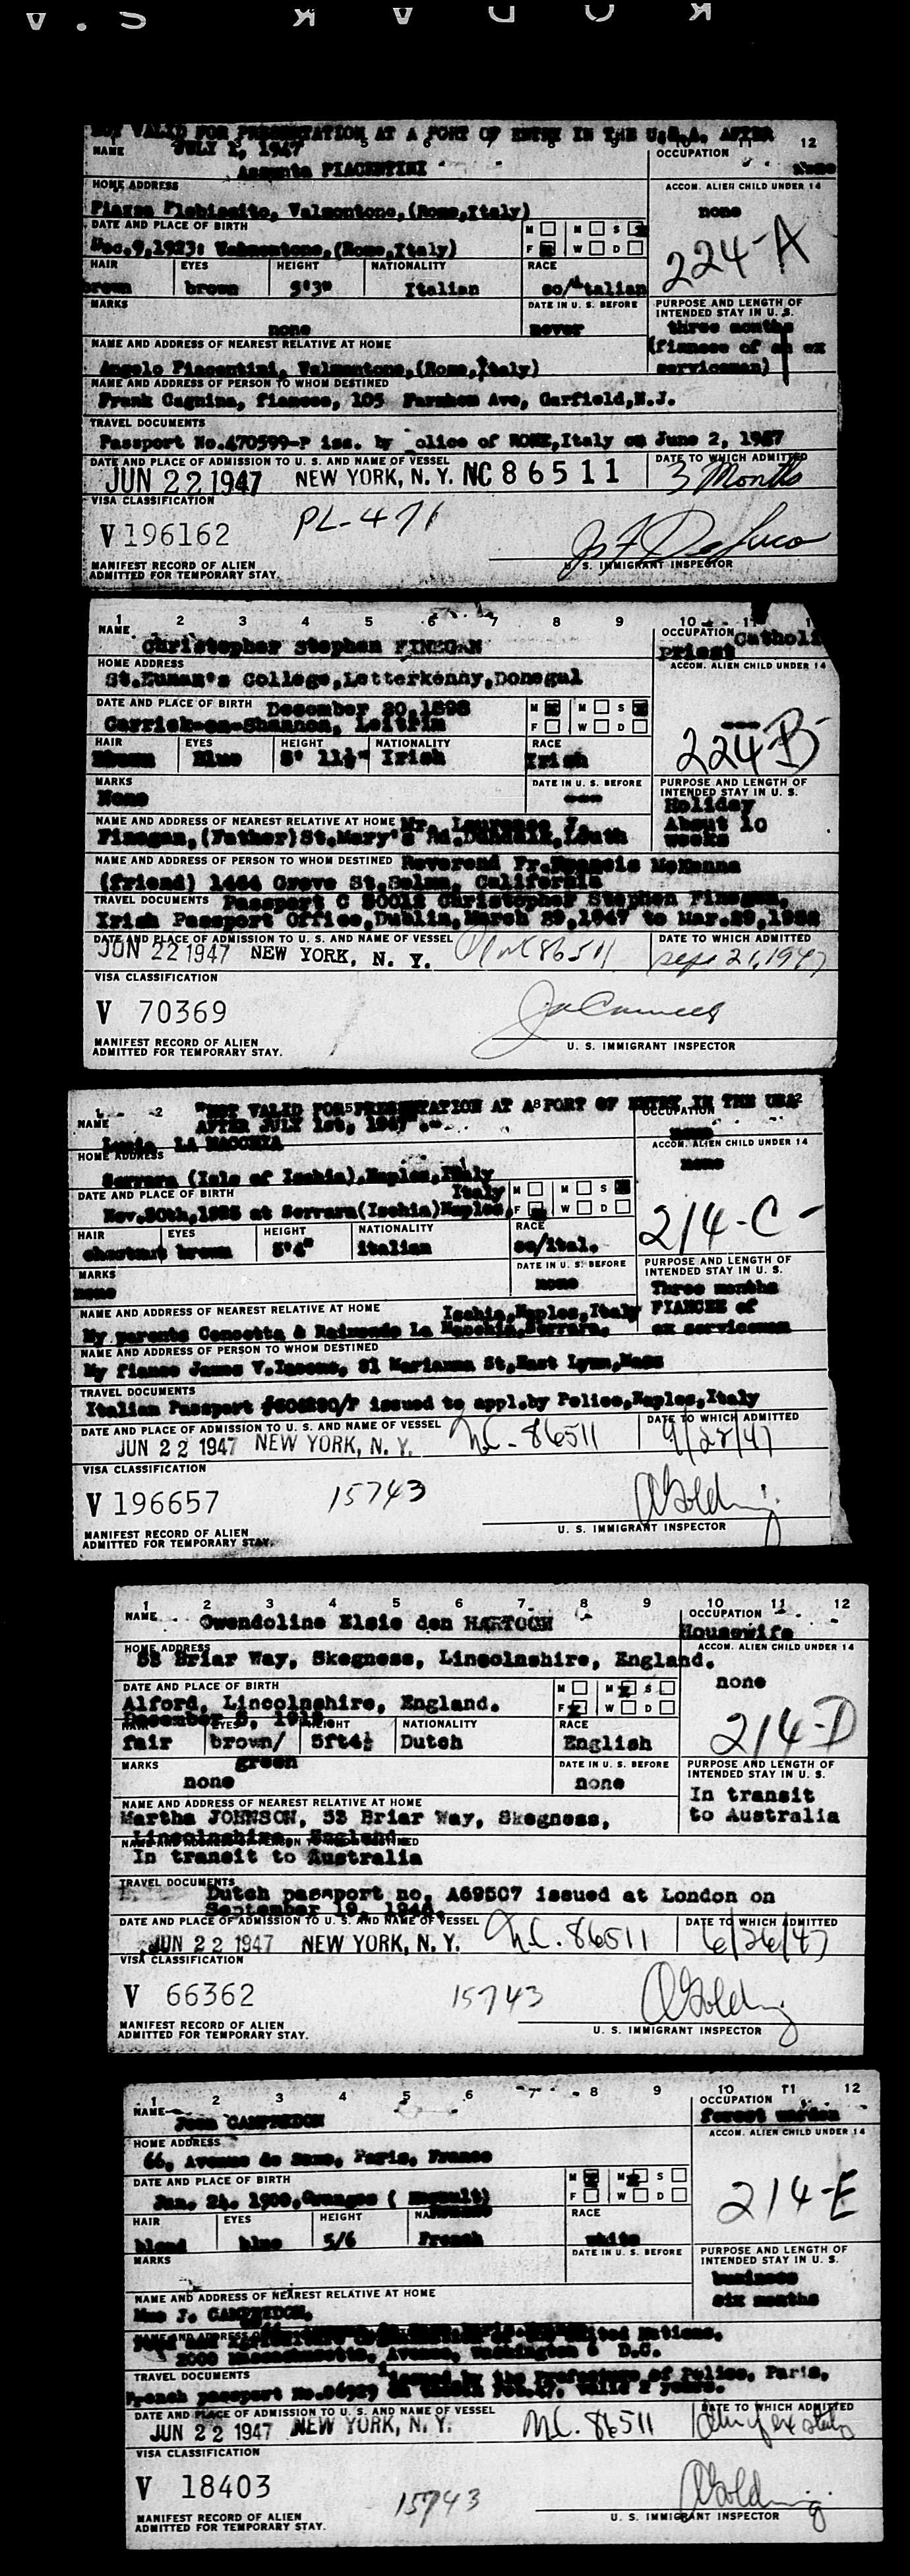 V . S K A D O K
NOT VALID FOR PRESENTATION AT A PORT OF ENTRY IN THE U.S.A. AFTER
JULY 1, 1947 12
NAME OCCUPATION
Assunta PIACENTINI None
HOME ADDRESS ACCOM. ALIEN CHILD UNDER 14
Piazza Plebiscito, Valmontone,(Rome,Italy) none
DATE AND PLACE OF BIRTH M M S
Dec.9,1923: Valmontone,(Rome,Italy) F W D 224-A
HAIR EYES HEIGHT NATIONALITY RACE
brown brown 5'3" Italian so/Italian
MARKS DATE IN U. S. BEFORE PURPOSE AND LENGTH OF
INTENDED STAY IN U. S.
none never three months
NAME AND ADDRESS OF NEAREST RELATIVE AT HOME (fiancee of an ex
Angelo Piacentini, Valmontone,(Rome,Italy) serviceman)
NAME AND ADDRESS OF PERSON TO WHOM DESTINED
Frank Cagnina, fiancee, 105 Farnham Ave, Garfield,N.J.
TRAVEL DOCUMENTS
Passport No.470599-P iss. by olice of ROME,Italy on June 2, 1947
DATE AND PLACE OF ADMISSION TO U. S. AND NAME OF VESSEL DATE TO WHICH ADMITTED
JUN 22 1947 NEW YORK, N. Y. NC 86511 3 Months
VISA CLASSIFICATION
V 196162 PL-471
U. S. IMMIGRANT INSPECTOR
MANIFEST RECORD OF ALIEN
ADMITTED FOR TEMPORARY STAY.
1 2 3 4 5 6 7 8 9 10 11
NAME Christopher Stephen FINEGAN OCCUPATION Catholi
priest
HOME ADDRESS ACCOM. ALIEN CHILD UNDER 14
St.Eunan's College,Letterkenny,Donegal
DATE AND PLACE OF BIRTH December 20,1898 M M S
Carrick-on-Shannon, Leitrim F W D 224-B
HAIR EYES HEIGHT NATIONALITY RACE
Brown Blue 5' 11½" Irish Irish
MARKS DATE IN U. S. BEFORE PURPOSE AND LENGTH OF
INTENDED STAY IN U. S.
None Holiday
NAME AND ADDRESS OF NEAREST RELATIVE AT HOME Mr. Laurence J. About 10
Finegan,(Father)St.Mary's Rd.Dundalk,Louth weeks
NAME AND ADDRESS OF PERSON TO WHOM DESTINED Reverend Fr.Francis McKenna
(friend) 1464 Grove St.Selma, California
TRAVEL DOCUMENTS Passport C 50012 Christopher Stephen Finegan,
Irish Passport Office,Dublin,March 29,1947 to Mar.29,1952
DATE AND PLACE OF ADMISSION TO U. S. AND NAME OF VESSEL DATE TO WHICH ADMITTED
JUN 22 1947 NEW YORK, N. Y. 86511 Sept 21, 1947
VISA CLASSIFICATION
V 70369
MANIFEST RECORD OF ALIEN U. S. IMMIGRANT INSPECTOR
ADMITTED FOR TEMPORARY STAY.
1 2 "NOT VALID FOR PRESENTATION AT A PORT OF ENTRY IN THE USA
NAME AFTER JULY 1st, 1947 OCCUPATION
LA MACCHIA none
HOME ADDRESS ACCOM. ALIEN CHILD UNDER 14
Serrara (Isle of Ischia),Naples,Italy none
DATE AND PLACE OF BIRTH Italy M M S
Nov.30th, at Serrara(Ischia)Naples, F W D 214-C-
HAIR EYES HEIGHT NATIONALITY RACE
chestnut brown 5'4" italian so/ital.
MARKS DATE IN U. S. BEFORE PURPOSE AND LENGTH OF
INTENDED STAY IN U. S.
none none Three months
NAME AND ADDRESS OF NEAREST RELATIVE AT HOME Ischia,Naples,Italy FIANCEE of
My parents Concetta & Raimondo La Macchia,Serrara, ex serviceman
NAME AND ADDRESS OF PERSON TO WHOM DESTINED
My fiance James V. 81 Marianna St,East Lynn,Mass
TRAVEL DOCUMENTS
Italian Passport issued to appl.by Police,Naples,Italy
DATE AND PLACE OF ADMISSION TO U. S. AND NAME OF VESSEL DATE TO WHICH ADMITTED
JUN 22 1947 NEW YORK, N. Y. N.C. - 86511 9/22/47
VISA CLASSIFICATION
V 196657 15743
U. S. IMMIGRANT INSPECTOR
MANIFEST RECORD OF ALIEN
ADMITTED FOR TEMPORARY STAY.
1 2 3 4 5 6 7 8 9 10 11 12
NAME Gwendoline Elsie den HARTOGH OCCUPATION
Housewife
HOME ADDRESS ACCOM. ALIEN CHILD UNDER 14
53 Briar Way, Skegness, Lincolnshire, England.
DATE AND PLACE OF BIRTH M M S none
Alford, Lincolnshire, England. F W D 214-D
December
HAIR EYES HEIGHT NATIONALITY RACE
fair brown/ 5ft4½ Dutch English
MARKS green DATE IN U. S. BEFORE PURPOSE AND LENGTH OF
INTENDED STAY IN U. S.
none none In transit
NAME AND ADDRESS OF NEAREST RELATIVE AT HOME to Australia
Martha JOHNSON, 53 Briar Way, Skegness,
Lincolnshire, England.
In transit to Australia
TRAVEL DOCUMENTS
Dutch passport no. A69507 issued at London on
September 19, 1946.
DATE AND PLACE OF ADMISSION TO U. S. AND NAME OF VESSEL DATE TO WHICH ADMITTED
JUN 22 1947 NEW YORK, N. Y. N.C. 86511 6/26/47
VISA CLASSIFICATION
V 66362 15743
MANIFEST RECORD OF ALIEN U. S. IMMIGRANT INSPECTOR
ADMITTED FOR TEMPORARY STAY.
1 2 3 4 5 6 7 8 9 10 11 12
NAME Jean CAMPREDON OCCUPATION
forest warden
HOME ADDRESS ACCOM. ALIEN CHILD UNDER 14
66, Avenue de Saxe, Paris, France
DATE AND PLACE OF BIRTH M M S
Jan. 24. 1900, (Herault) F W D 214-E
HAIR EYES HEIGHT RACE
blond blue 5/6 French white
MARKS DATE IN U. S. BEFORE PURPOSE AND LENGTH OF
INTENDED STAY IN U. S.
business
NAME AND ADDRESS OF NEAREST RELATIVE AT HOME six months
Mme J. CAMPREDON,
United Nations,
2000 Massachusetts, Avenue, Washington 6 D.C.
TRAVEL DOCUMENTS issued by the Prefecture of Police, Paris,
French passport valid 2 years.
DATE AND PLACE OF ADMISSION TO U. S. AND NAME OF VESSEL DATE TO WHICH ADMITTED
JUN 22 1947 NEW YORK, N. Y. N.C. 86511
VISA CLASSIFICATION
V 18403 15743
MANIFEST RECORD OF ALIEN U. S. IMMIGRANT INSPECTOR
ADMITTED FOR TEMPORARY STAY.